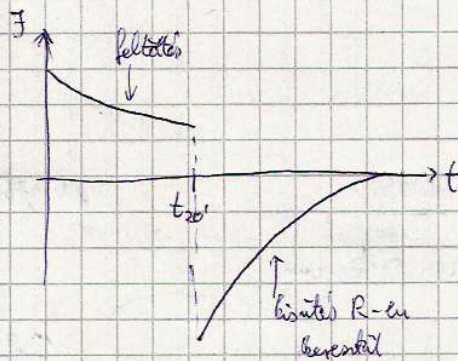 I
feltöltés
t
t20'
kisütés R-en
keresztül